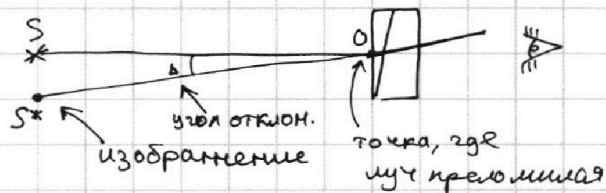 S
O
Δ
S*
угол отклон.
изображение
точка, где
луч преломилая